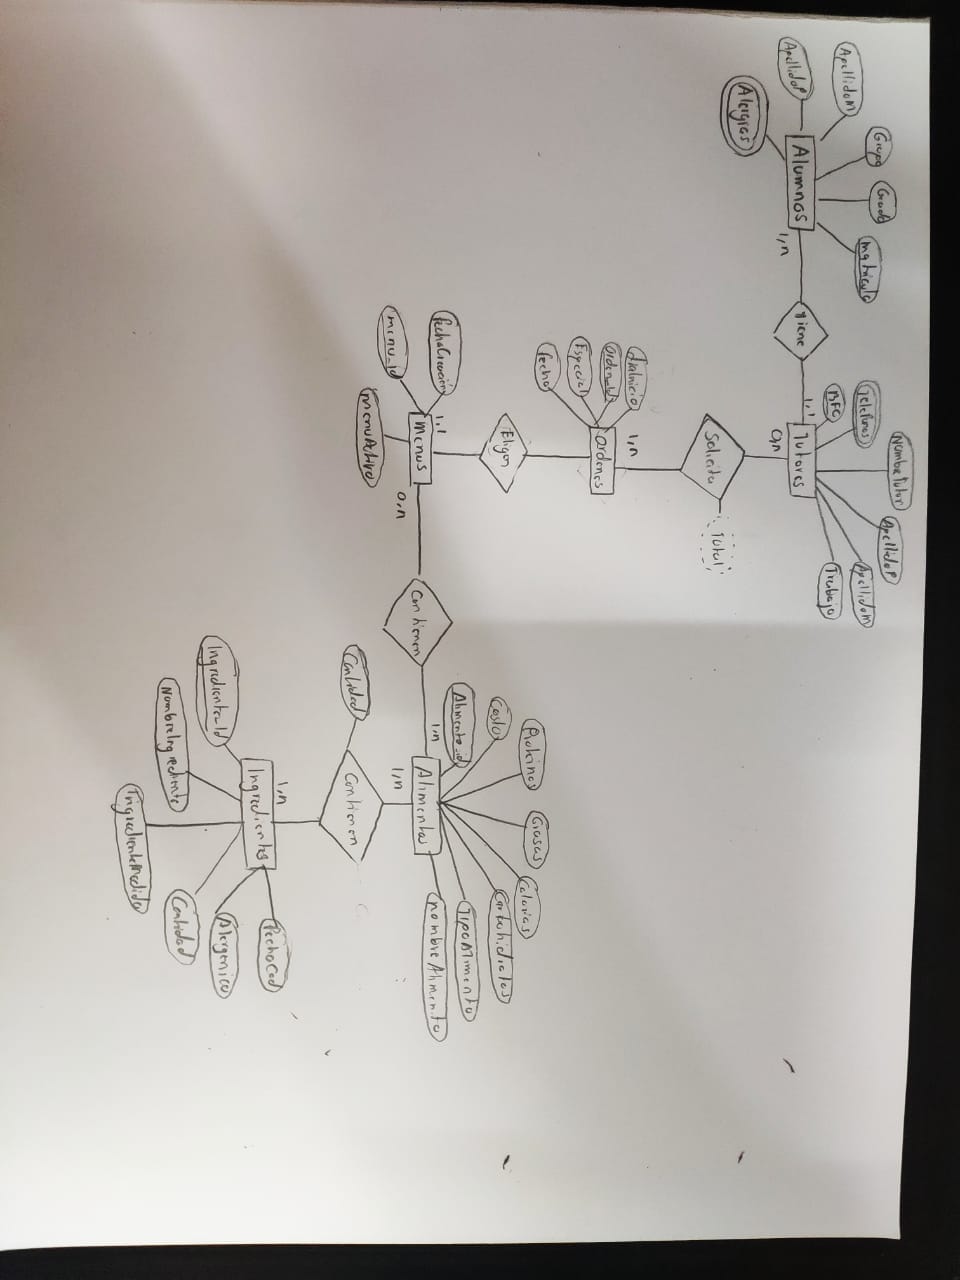 ApellidoP
ApellidoM
Grupo
Grado
matricula
Alergias
Alumnos
1,n
tiene
1,1
RFC
Telefonos
NombreTutor
ApellidoP
ApellidoM
Trabajo
Tutores
0,n
Solicita
Total
1,n
Ordenes
diaInicio
Especial
Fecha
Eligen
1,1
Menus
FechaCreación
menu_Id
menuActivo
0,n
Contienen
1,n
Alimento_id
Costo
Proteinas
Grasas
Calorias
Carbohidratos
TipoAlimento
nombreAlimento
Alimentos
1,n
Contienen
Cantidad
1,n
Ingredientes
Ingrediente_Id
NombreIngrediente
IngredienteMedida
Cantidad
Alergenico
FechaCad